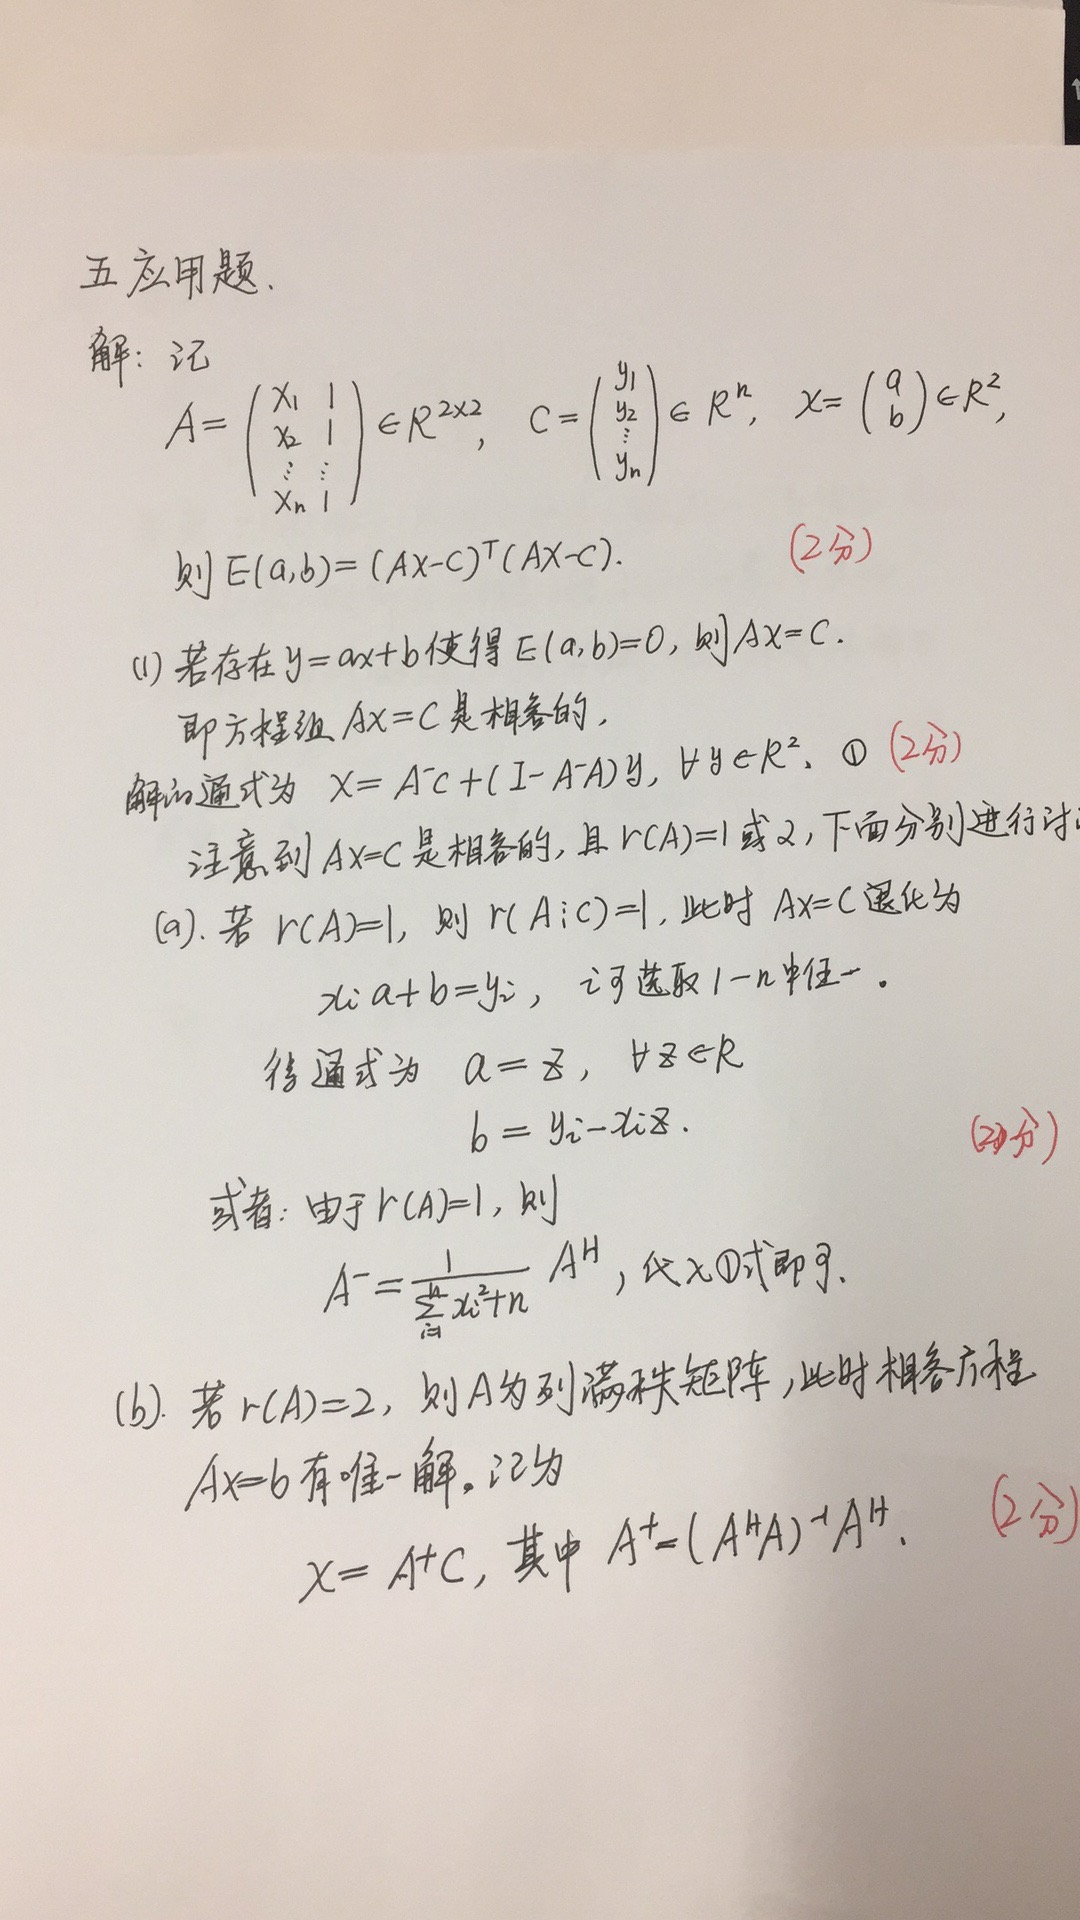 五 应用题.
解: 记
A = ( x₁ 1 ; x₂ 1 ; ⋮ ⋮ ; xₙ 1 ) ∈ R^{2×2}, C = ( y₁ ; y₂ ; ⋮ ; yₙ ) ∈ Rⁿ, X = ( a ; b ) ∈ R²,
则 E(a,b) = (AX-C)ᵀ(AX-C). (2分)
(1) 若存在 y=ax+b 使得 E(a,b)=0, 则 AX=C.
即方程组 AX=C 是相容的,
解的通式为 X = A⁻C + (I-A⁻A)y, ∀y∈R². ① (2分)
注意到 AX=C 是相容的, 且 r(A)=1 或 2, 下面分别进行讨
(a). 若 r(A)=1, 则 r(A⋮C)=1, 此时 AX=C 退化为
xᵢa+b=yᵢ, i可选取 1-n 中任一.
得通式为 a = z, ∀z∈R
b = yᵢ-xᵢz. (2分)
或者: 由于 r(A)=1, 则
A⁻ = \frac{1}{\sum_{i=1}^{n} xᵢ²+n} Aᴴ, 代入①式即可.
(b). 若 r(A)=2, 则A为列满秩矩阵, 此时相容方程
AX=b 有唯一解. 记为
X = A⁺C, 其中 A⁺=(AᴴA)⁻¹Aᴴ. (2分)